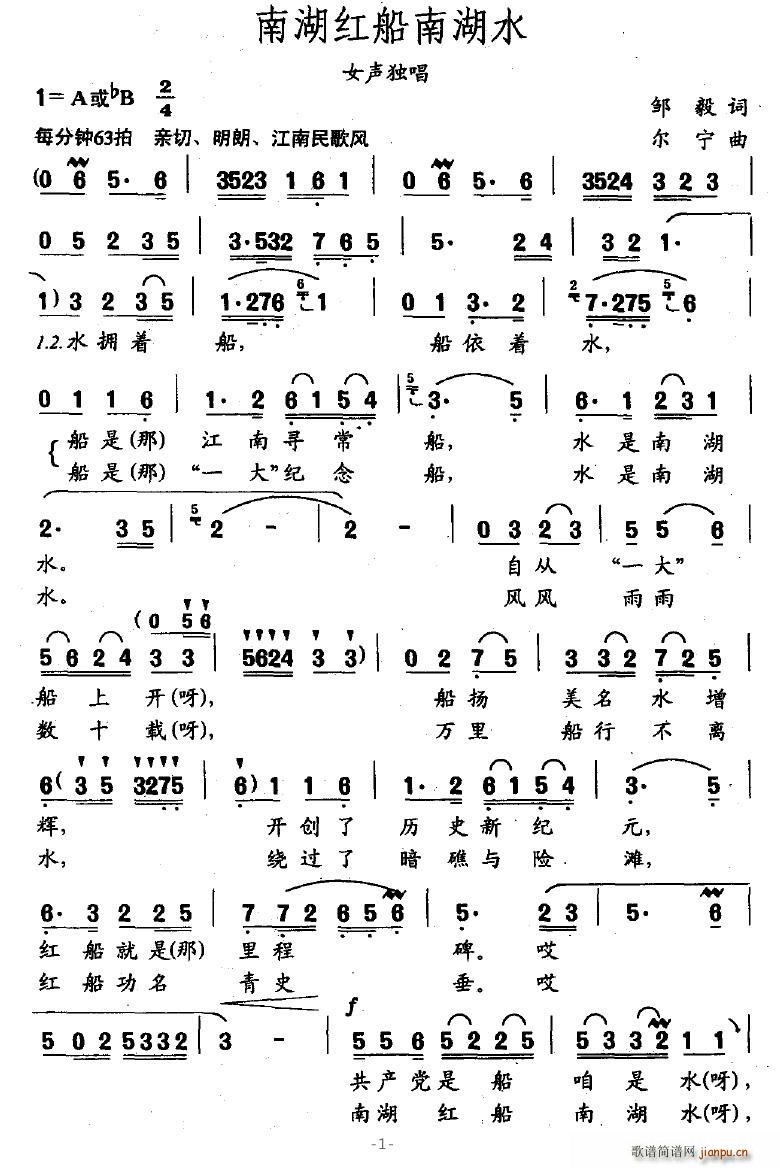 南湖红船南湖水
女声独唱
1=A或♭B 2/4
邹毅词
每分钟63拍 亲切、明朗、江南民歌风
尔宁曲
(0 6 5· 6 | 3523 1 6 1 | 0 6 5· 6 | 3524 3 2 3 |
0 5 2 3 5 | 3·532 7 6 5 | 5· 2 4 | 3 2 1· |
1) 3 2 3 5 | 1·276 6 1 | 0 1 3· 2 | 2 7·275 6 |
1.2.水拥着 船, 船依着 水,
0 1 1 6 | 1· 2 6 1 5 4 | 5 3· 5 | 6· 1 2 3 1 |
船是(那) 江南寻常 船, 水是南湖
船是(那) “一大”纪念 船, 水是南湖
2· 3 5 | 5 2 - | 2 - | 0 3 2 3 | 5 5 6 |
水。 自从 “一大”
水。 风风 雨雨
(0 5 6
5 6 2 4 3 3 | 5624 3 3) | 0 2 7 5 | 3 3 2 7 2 5 |
船上开(呀), 船扬 美名水增
数十载(呀), 万里 船行不离
6( 3 5 3275 | 6) 1 1 6 | 1· 2 6 1 5 4 | 3· 5 |
辉, 开创了 历史新纪 元,
水, 绕过了 暗礁与险 滩,
6· 3 2 2 5 | 7 7 2 6 5 6 | 5· 2 3 | 5· 6 |
红船就是(那) 里程 碑。 哎
红船功名 青史 垂。 哎
f
5 0 2 5 3 3 2 | 3 - | 5 5 6 5 2 2 5 | 5 3 3 2 1 1 |
共产党是船 咱是水(呀),
南湖红船 南湖水(呀),
-1-
歌谱简谱网
jianpu.cn